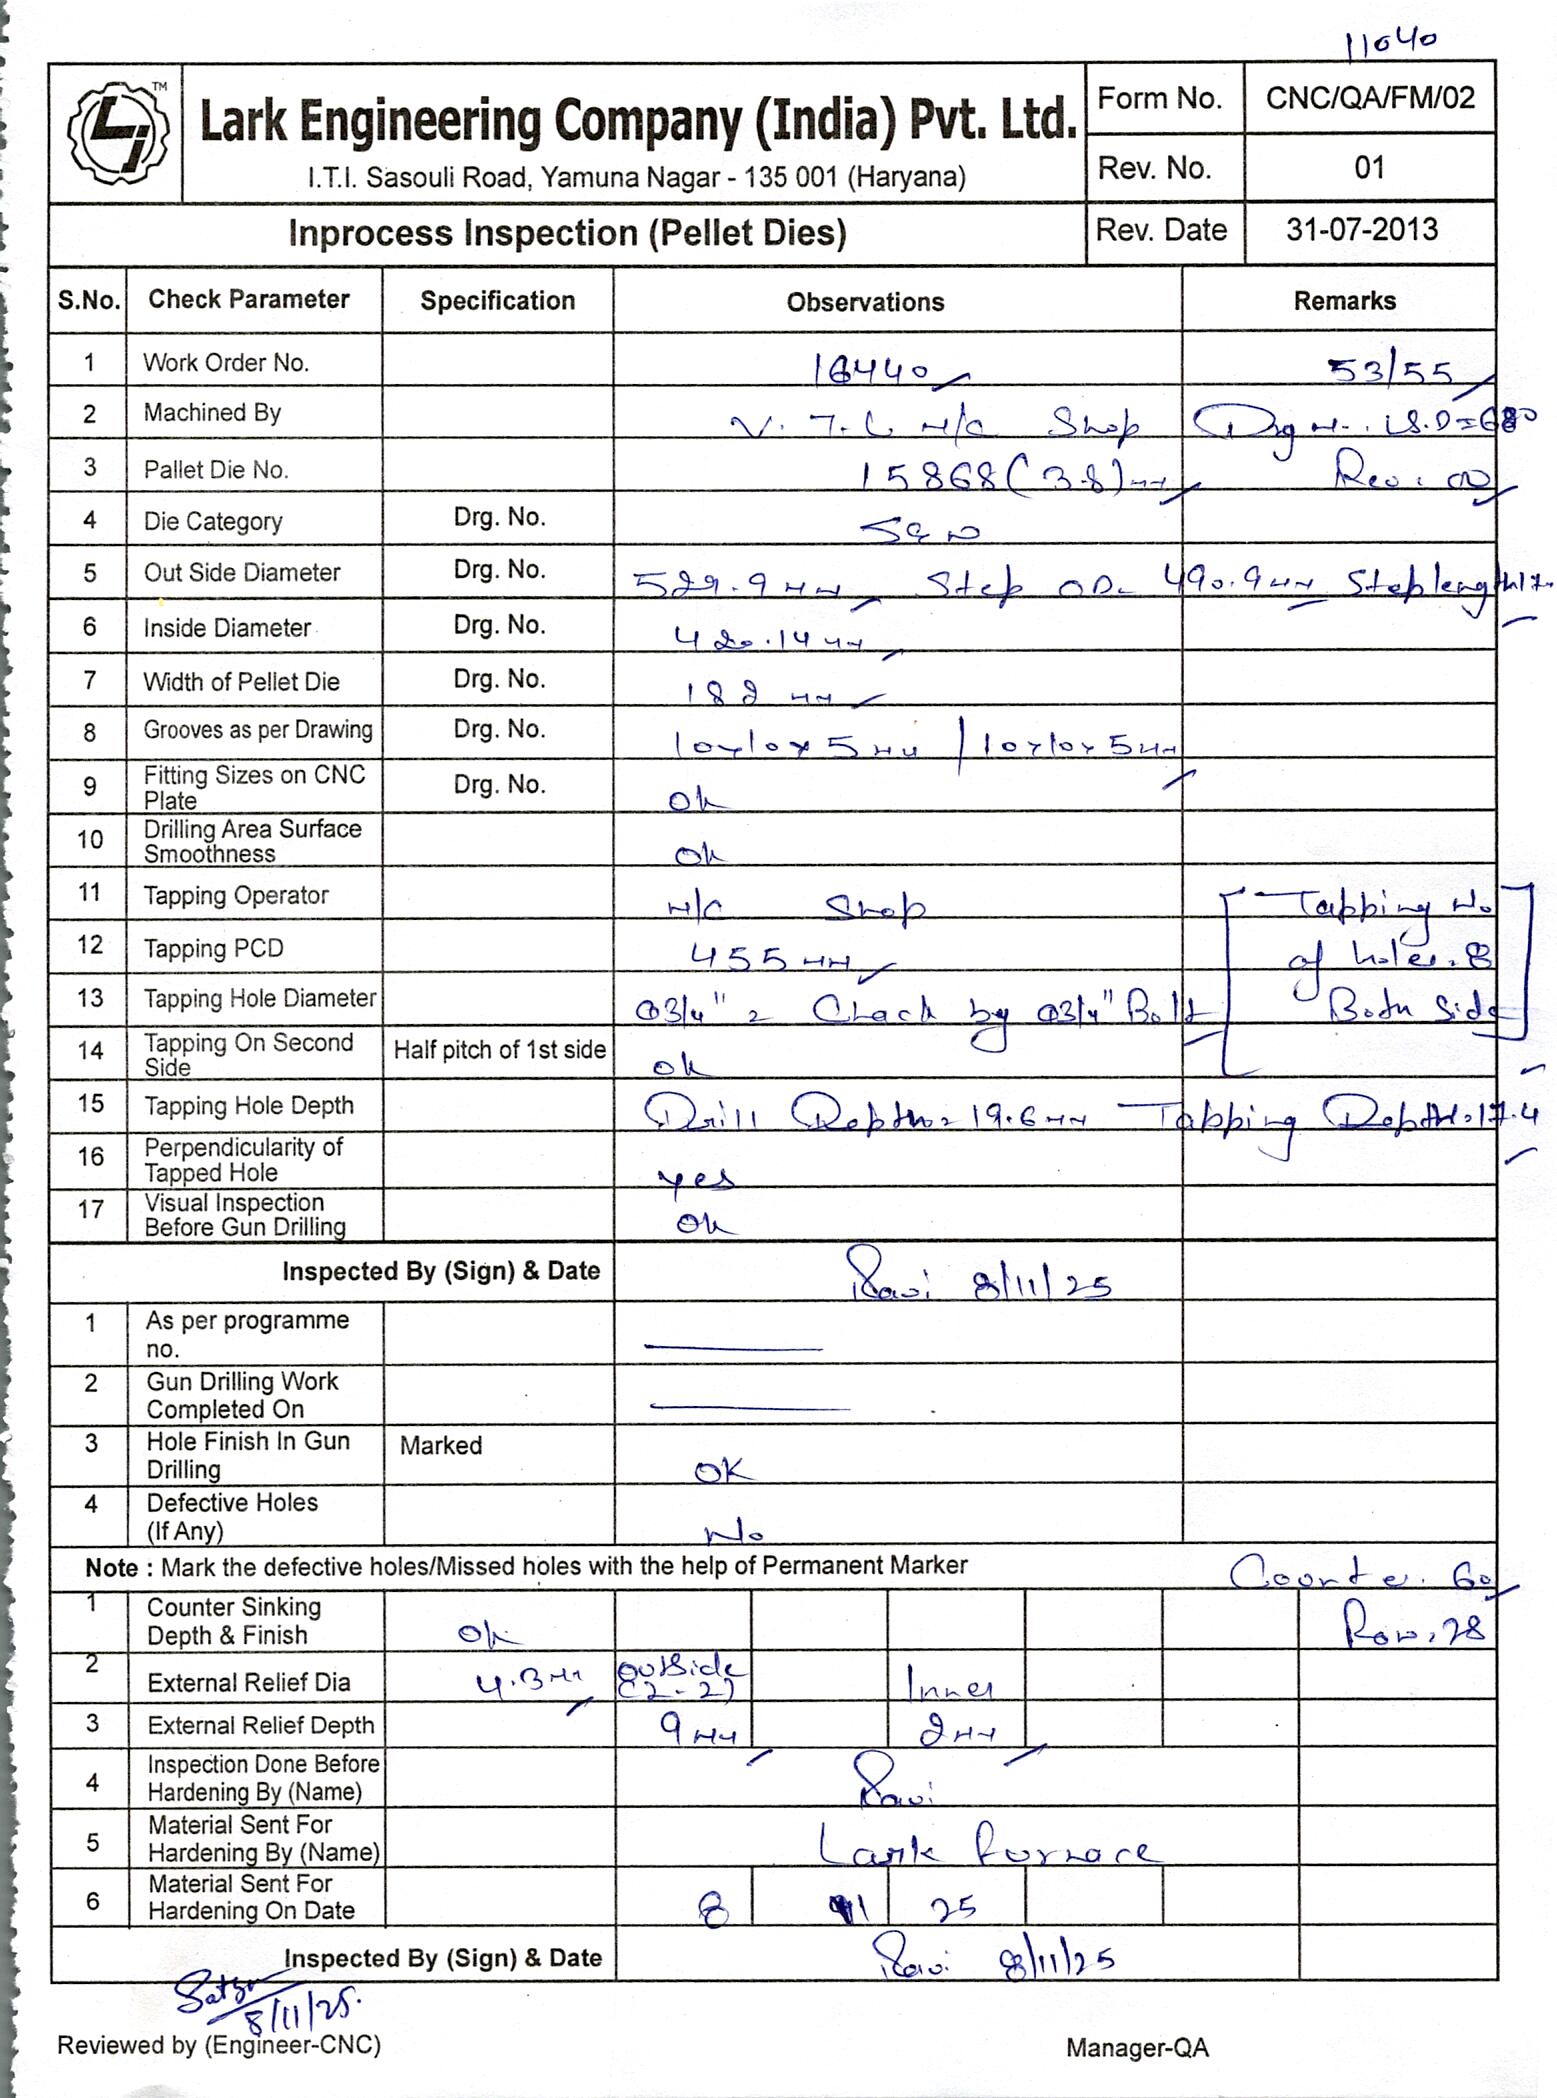 11040
TM
Lark Engineering Company (India) Pvt. Ltd.
I.T.I. Sasouli Road, Yamuna Nagar - 135 001 (Haryana)
Form No. CNC/QA/FM/02
Rev. No. 01
Inprocess Inspection (Pellet Dies) Rev. Date 31-07-2013
S.No. Check Parameter Specification Observations Remarks
1 Work Order No. 16440 53/55
2 Machined By V.T.L M/C Shop Drg
3 Pallet Die No. 15868 (3.8) mm Rev. 00
4 Die Category Drg. No.
5 Out Side Diameter Drg. No. 529.9 mm Step OD- 490.9 mm Step length
6 Inside Diameter Drg. No. 420.14 mm
7 Width of Pellet Die Drg. No. 182 mm
8 Grooves as per Drawing Drg. No. 10x10x5 mm / 10x10x5 mm
9 Fitting Sizes on CNC Plate Drg. No. Ok
10 Drilling Area Surface Smoothness Ok
11 Tapping Operator M/C Shop Tapping No
12 Tapping PCD 455 mm of holes. 8
13 Tapping Hole Diameter Ø3/4" = Check by Ø3/4" Bolt Both Side
14 Tapping On Second Side Half pitch of 1st side Ok
15 Tapping Hole Depth Drill Depth = 19.6 mm Tapping Depth = 17.4
16 Perpendicularity of Tapped Hole yes
17 Visual Inspection Before Gun Drilling Ok
Inspected By (Sign) & Date Ravi 8/11/25
1 As per programme no.
2 Gun Drilling Work Completed On
3 Hole Finish In Gun Drilling Marked OK
4 Defective Holes (If Any) No
Note : Mark the defective holes/Missed holes with the help of Permanent Marker Counter. 60
1 Counter Sinking Depth & Finish Ok Row. 28
2 External Relief Dia 4.3 mm Outside (2-2) Inner
3 External Relief Depth 9 mm 2 mm
4 Inspection Done Before Hardening By (Name) Ravi
5 Material Sent For Hardening By (Name) Lark Furnace
6 Material Sent For Hardening On Date 8 11 25
Inspected By (Sign) & Date Ravi 8/11/25
8/11/25.
Reviewed by (Engineer-CNC) Manager-QA